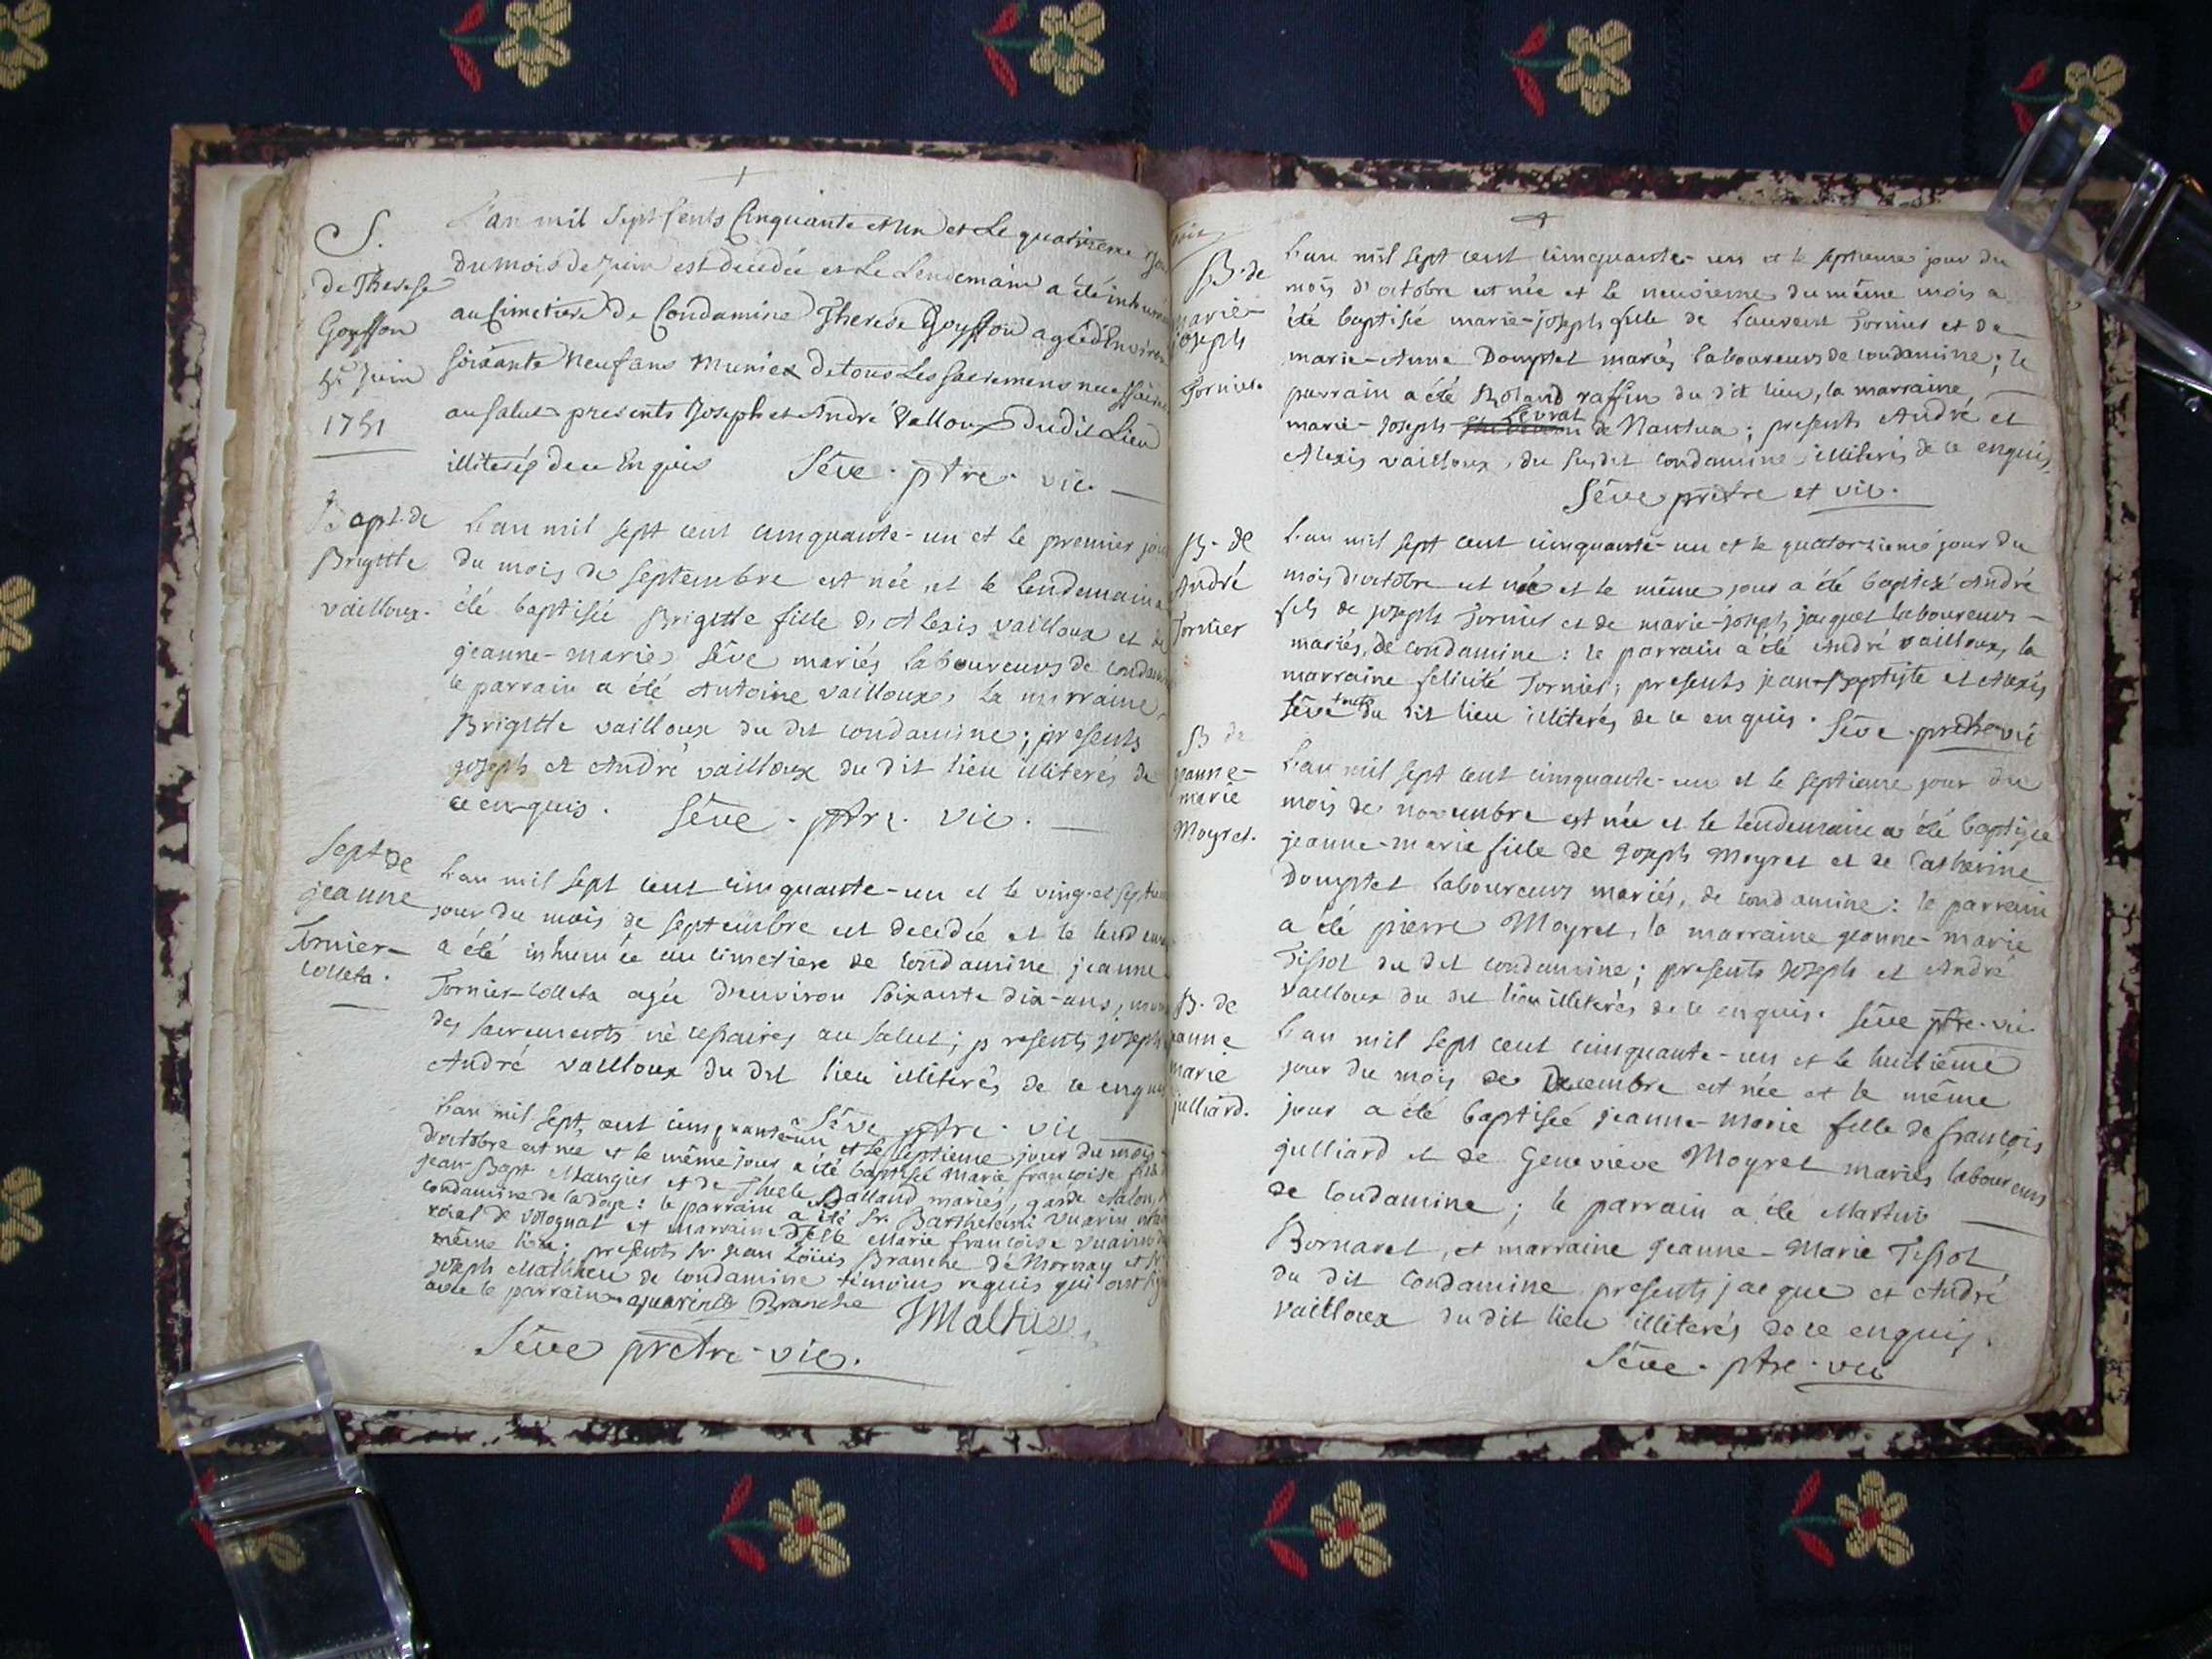 S.
de Therese
Goyffon
5e Juin
1751
L'an mil Sept Cents Cinquante et Un et Le quatrieme
du mois de Juin est décédée et Le Lendemain a été
au Cimetiere de Condamine Therese Goyffon agée d'Environ
soixante Neuf ans Muniex de tous Les Sacremens
au Salut presents Joseph et André Valloux Dudit Lieu
illiterés de ce Enquis Séve . ptre . vic.
Bapt. de
Brigitte
vailloux.
L'an mil sept cent cinquante-un et le premier
du mois de septembre est née et le lendemain a
été baptisée Brigitte fille d'Alexis vailloux et de
jeanne-marie Sêve mariés laboureurs de
le parrain a été Antoine vailloux, la marraine
Brigitte vailloux du dit condamine; presents
joseph et André vailloux du dit lieu illiterés de
ce enquis. Sêve . ptre . vic.
Sept de
jeanne
Tornier-
Colleta.
L'an mil sept cent cinquante-un et le vingt-et
jour du mois de septembre est decédée et le
a été inhumée au cimetiere de Condamine jeanne
Tornier-Colleta agée d'environ soixante dix-ans,
des sacrements nécessaires au salut; presents joseph
André vailloux du dit lieu illiterés de ce
Sêve ptre . vic
L'an mil sept cent cinquante-un et le septieme jour du mois
d'octobre est née et le même jour a été baptisée Marie françoise
jean-Bapt Maugier et de Thecle Balland mariés, garde
condamine de la doye: le parrain a été Sr. Barthelemi Vuarin
roïal de volognat et marraine Delle Marie françoise
même lieu; presents Sr jean Loüis Branche de Mornay et
joseph Mathieu de condamine témoins requis qui ont
avec le parrain. Branche
Sêve prêtre - vic.
B. de
marie-
joseph
Tornier.
L'an mil sept cent cinquante-un et le septieme jour du
mois d'octobre est née et le neuvieme du même mois a
été baptisée marie-joseph fille de Laurent Tornier et de
marie-Anne Domptet mariés laboureurs de condamine; le
parrain a été Roland raffin du dit lieu, la marraine
marie-joseph Levrat de Nantua; presents André et
Alexis vailloux, du susdit condamine illiterés de ce enquis.
Sêve prêtre et vic.
B. de
André
Tornier
L'an mil sept cent cinquante-un et le quatorzieme jour du
mois d'octobre est né et le même jour a été baptisé André
fils de joseph Tornier et de marie-joseph jacquet laboureurs
mariés, de condamine: le parrain a été André vailloux, la
marraine felicité Tornier; presents jean-Baptiste et Alexis
Sêve du dit lieu illiterés de ce enquis. Sêve . prêtre vic
B de
jeanne-
marie
Moyret.
L'an mil sept cent cinquante-un et le septieme jour du
mois de novembre est née et le lendemain a été baptisée
jeanne-marie fille de joseph Moyret et de Catherine
Domptet laboureurs mariés, de condamine: le parrain
a été pierre Moyret, la marraine jeanne-marie
Tissot du dit condamine; presents joseph et André
vailloux du dit lieu illiterés de ce enquis. Sêve ptre-vic
B. de
jeanne
marie
julliard.
L'an mil sept cent cinquante-un et le huitième
jour du mois de Decembre est née et le même
jour a été baptisée jeanne-marie fille de françois
julliard et de Genevieve Moyret mariés laboureurs
de Condamine; le parrain a été Martin
Bornaret, et marraine jeanne-Marie Tissot
du dit Condamine presents jacque et André
vailloux du dit lieu illiterés de ce enquis.
Sêve . ptre . vic